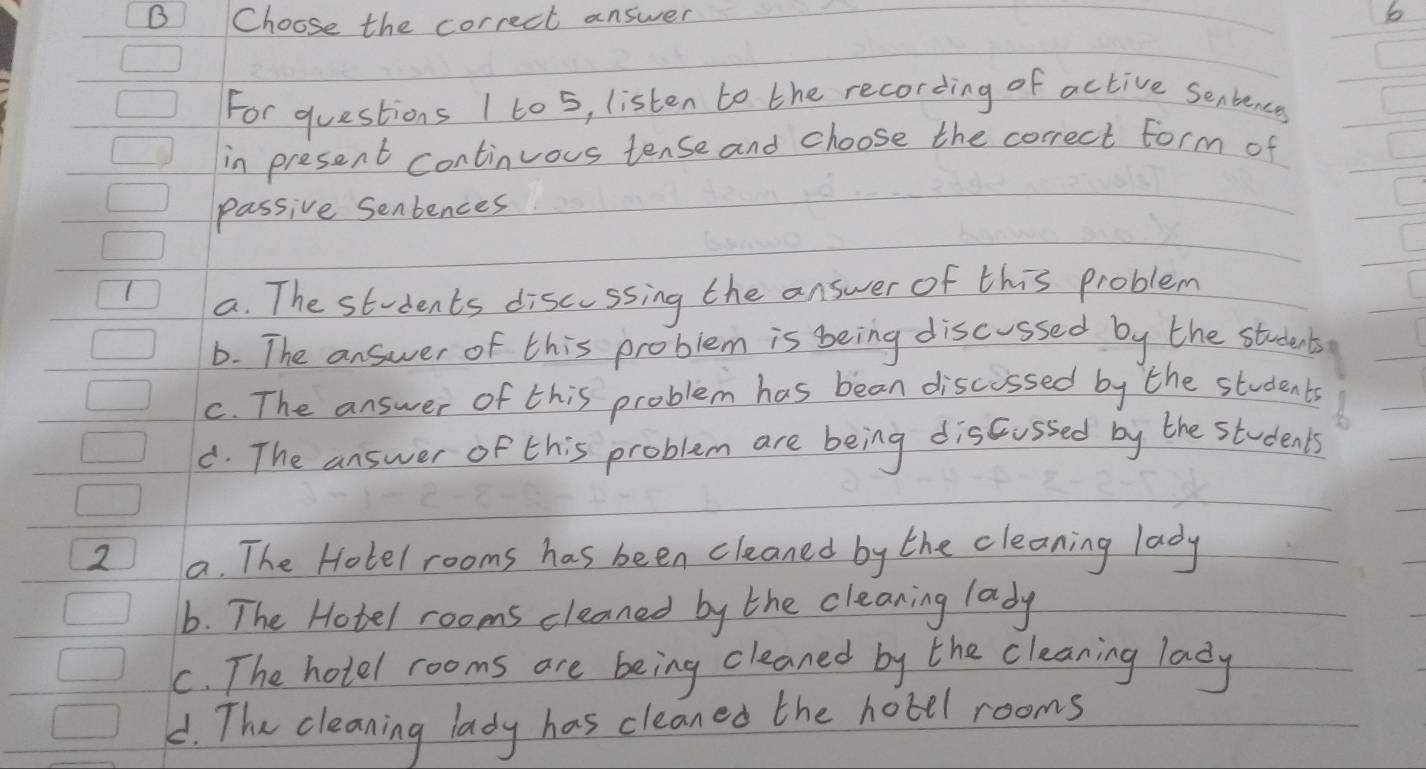 B Choose the correct answer
6
For questions 1 to 5, listen to the recording of active sentences
in present continuous tense and choose the correct form of
passive sentences
1 a. The students discussing the answer of this problem
b. The answer of this problem is being discussed by the students
c. The answer of this problem has bean discussed by the students
d. The answer of this problem are being discussed by the students
2 a. The Hotel rooms has been cleaned by the cleaning lady
b. The Hotel rooms cleaned by the cleaning lady
c. The hotel rooms are being cleaned by the cleaning lady
d. The cleaning lady has cleaned the hotel rooms